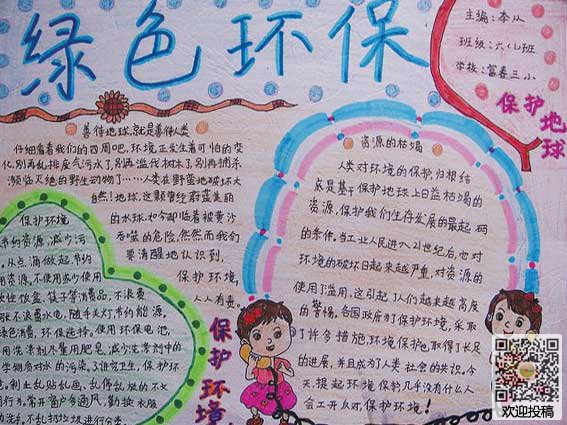 绿色环保
主编：李从
班级：六(1)班
学校：富春三小
保护地球
善待地球,就是善待人类
仔细看看我们的四周吧,环境正发生着可怕的变
化.别再乱排废气污水了,别再滥伐树木了,别再捕杀
濒临灭绝的野生动物了……人类在野蛮地破坏大
自然!地球,这颗曾经蔚蓝美丽
的水球,如今却临着被黄沙
吞噬的危险,然然而我们
要清醒地认识到,
保护环境,
人人有责.
资源的枯竭
人类对环境的保护,归根结
底是基于保护地球上日益枯竭的
资源,保护我们生存发展的最起码
的条件.当工业人民进入21世纪后,也对
环境的破坏日起来越严重,对资源的
使用了滥用,这引起人们越来越高度
的警惕,各国政府为了保护环境,采取
了许多措施,环境保护也取得了长足
的进展,并且成为了人类社会的共识.今
天,提起环境保护几乎没有什么人
会工开以对,保护环境!
保护环境
节约资源,减少污
从点滴做起.节约
用资源,不使用或少使用
性饭盒、筷子等消费品,不浪费
张不浪费水电,随手关灯,节约能源,
绿色消费,环保选持.使用环保电池,
用洗漆剂尽量用肥皂,减少洗漆剂中的
学物质对水的污染,了讲究卫生,保护环
制止乱贴乱画,乱停乱放的不文
明行为.常开窗户多通风,勤换衣服
勤洗手,不乱扔垃圾进行分类.
保护环境
欢迎投稿